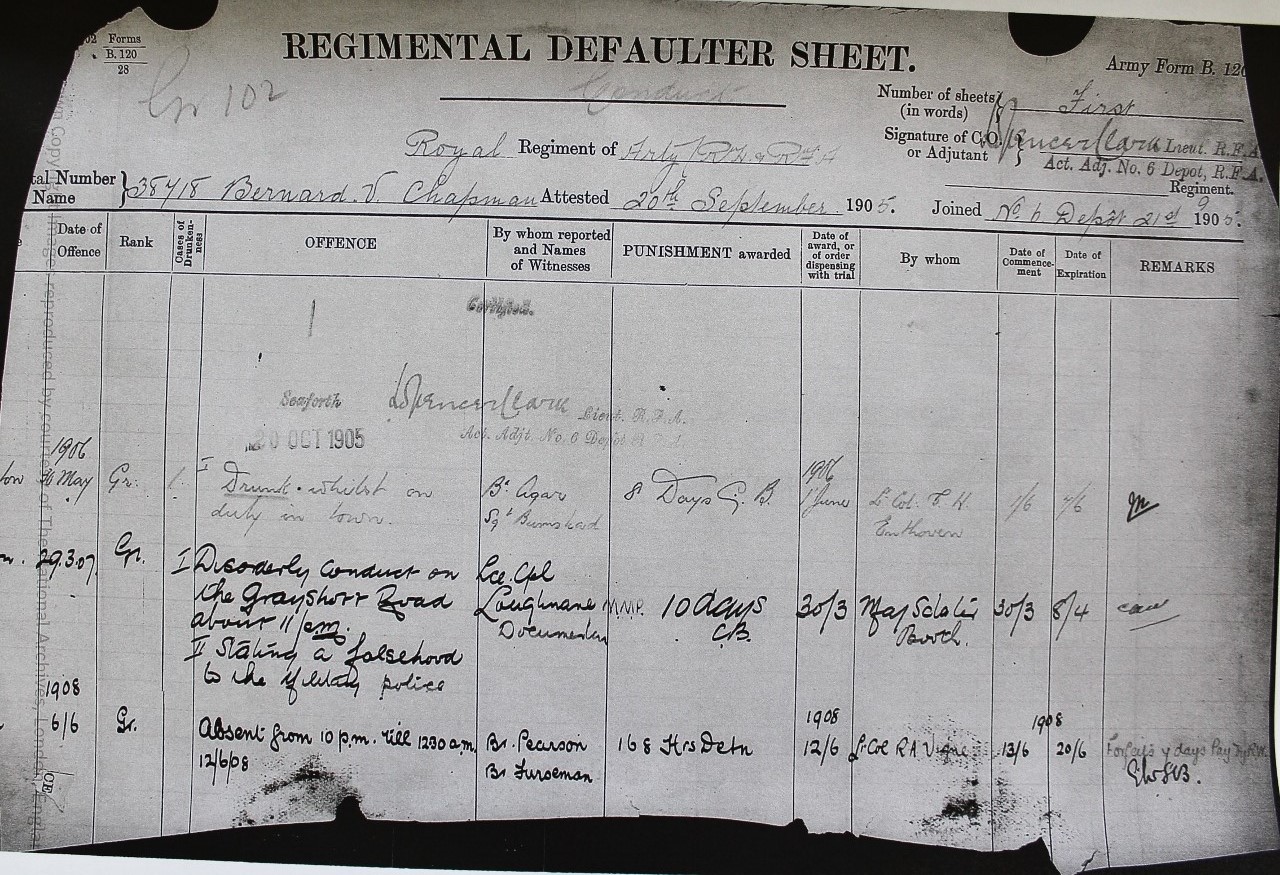 Forms
B. 120
28
REGIMENTAL DEFAULTER SHEET.
Army Form B. 120
Gr 102
Conduct
Number of sheets (in words) } First
Signature of C.O. or Adjutant } Spencer Clark Lieut. R.F.A.
Act. Adj. No. 6 Depot, R.F.A.
Regiment.
Royal Regiment of Arty RH & RFA
tal Number
Name } 38718 Bernard. V. Chapman Attested 20th September 1905. Joined No 6 Depôt 21st 9 1905.
Date of Offence
Rank
Cases of Drunken-ness
OFFENCE
By whom reported and Names of Witnesses
PUNISHMENT awarded
Date of award, or of order dispensing with trial
By whom
Date of Commence-ment
Date of Expiration
REMARKS
Certified.
Seaforth
Spencer Clark Lieut. R.F.A.
20 OCT 1905
Act. Adjt. No. 6 Depot R.F.A.
1906
May Gr. 1 I Drunk whilst on duty in town.
Br Agar
Sgt Bumstead
8 Days C. B.
1906
1 June
Lt Col. F. H. Enthoven
1/6 7/6
29.3.07. Gr. I Disorderly conduct on
the Grayshott Road
about 11 pm.
II Stating a falsehood
to the Military police
Lce. Cpl
Loughnane M.M.P.
Documentary
10 days
C.B.
30/3
Maj Sclater
Booth.
30/3 8/4
1908
6/6 Gr. Absent from 10 p.m. till 12 30 a.m.
12/6/08
Br. Pearson
Br Furseman
168 Hrs Detn
1908
12/6
Lt Col R A Vigne
1908
13/6 20/6
Forfeits 7 days Pay
Crown Copyright image reproduced by courtesy of The National Archives, London, England